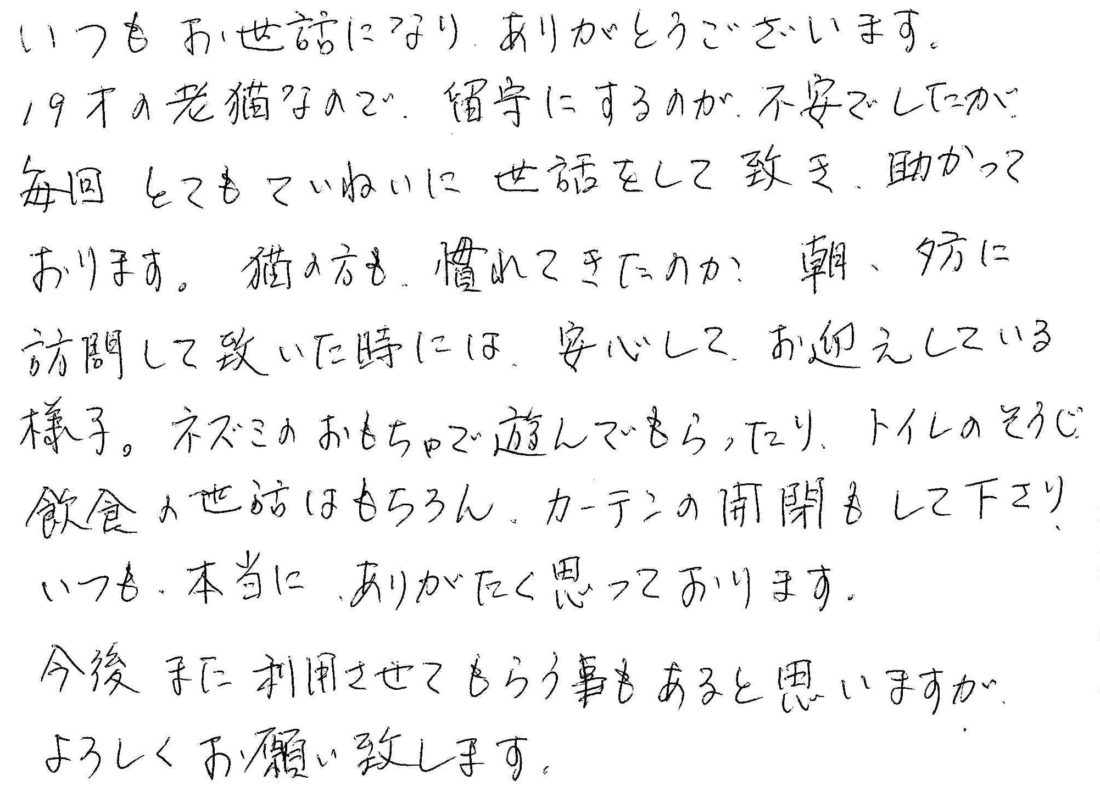 いつもお世話になり、ありがとうございます。
19才の老猫なので、留守にするのが、不安でしたが、
毎回とてもていねいに世話をして致き、助かって
おります。猫の方も、慣れてきたのか、朝、夕方に
訪問して致いた時には、安心して、お迎えしている
様子。ネズミのおもちゃで遊んでもらったり、トイレのそうじ
飲食の世話はもちろん、カーテンの開閉もして下さり、
いつも、本当に、ありがたく思っております。
今後また利用させてもらう事もあると思いますが、
よろしくお願い致します。